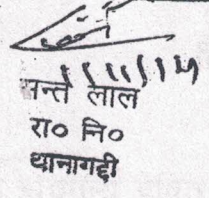 नन्ते लाल
रा० नि०
थानागद्दी